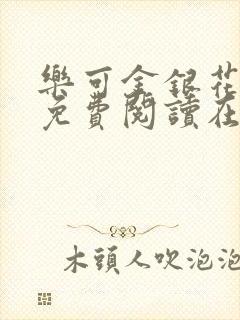 樂可金銀花
免費閱讀在
木頭人吹泡泡